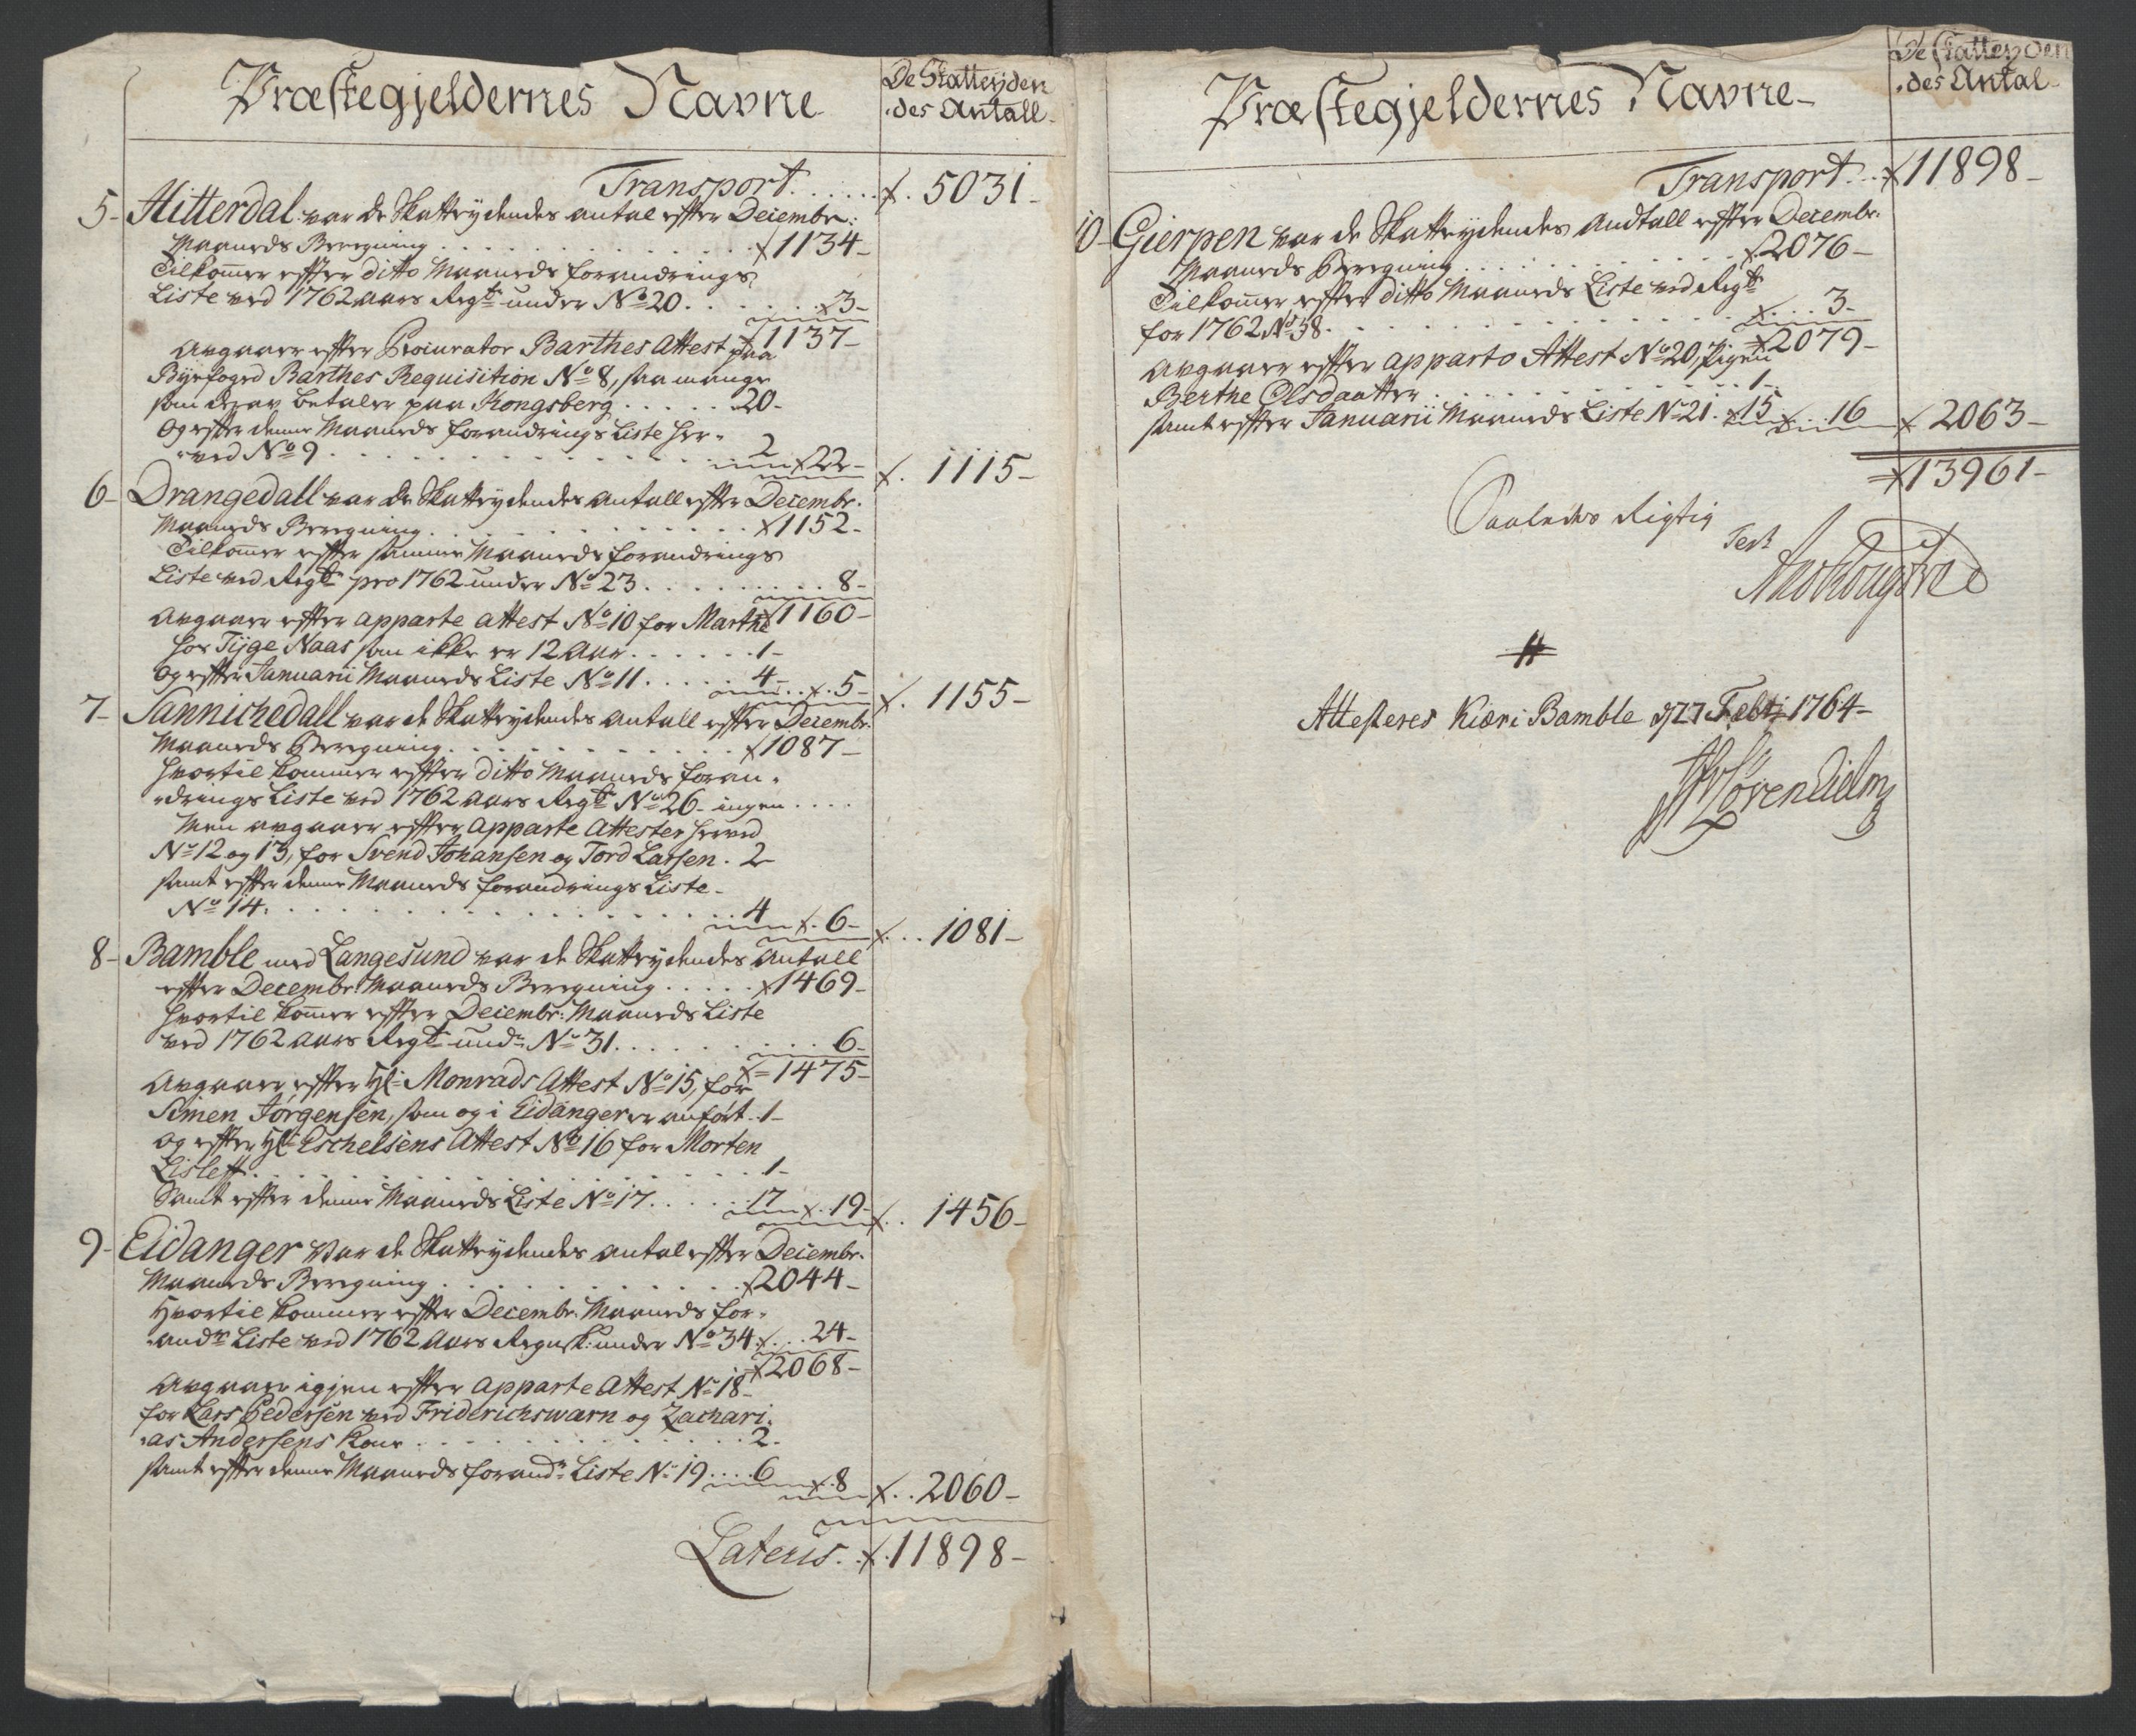 Præstegjeldernes Navne
De Skatteyden
des Antall
Transport . . . . . . 5031
5 Hitterdal var de Skatteydendes antal efter Decembr:
Maaneds Beregning . . . 1134
Tilkom̄er efter ditto Maaneds forandrings
Liste ved 1762 aars Regsk: under No 20 . . . 3
1137
Avgaaer efter Procurator Barthes Attest paa
Byefoged Barthes Requisition No 8, saa mange
som der av betaler paa Kongsberg . . . . 20
og efter denne Maaneds forandrings Liste her
ved No 9 . . . 2 22
1115
6 Drangedall var de Skatteydendes antall efter Decembr.
Maaneds Beregning . . . 1152
Tilkom̄er efter samme Maaneds forandrings
Liste ved Regsk: pro 1762 under No 23 . . . 8
1160
avgaaer efter apparte attest No 10 for Marthe
hos Tyge Naas som ikke er 12 Aar . . . 1
og efter Januarii Maaneds Liste No 11 . . . 4 5
1155
7 Sannichedall var de Skatteydendes antall efter Decembr.
Maaneds Beregning . . . 1087
hvortil kommer efter ditto Maaneds foran
drings Liste ved 1762 aars Regsk: No 26 ingen . . . .
Men avgaaer efter apparte Attester herved
No 12 og 13, for Svend Johansen og Tord Larsen . 2
samt efter denne Maaneds forandrings Liste
No 14 . . . 4 6
1081
8 Bamble med Langesund var de Skatteydendes Antall
efter Decembr: Maaneds Beregning . . . . . 1469
hvortil kom̄er efter Decembr: Maaneds Liste
ved 1762 aars Regsk: und: No 31 . . . 6
1475
avgaaer efter Hr Monrads Attest No 15, for
Simen Jørgensen, som og i Eidanger er anført . 1
og efter Hr Eschelsens Attest No 16 for Morten
. . . 1
Samt efter denne Maaneds Liste No 17 . . . 17 19
1456
9 Eidanger var de Skatteydendes antal efter Decembr.
Maaneds Beregning . . . 2044
Hvortil kommer efter Decembr. Maaneds for
andr: Liste ved 1762 Aars Regnsk: under No 34 . . . 24
2068
avgaaer igjen efter apparte Attest No 18
for Lars Pedersen ved Friderichswarn og Zachari
as Andersens Kone . . . 2
samt efter denne Maaneds forandr: Liste No 19 . . . . 6 8
2060
Lateris . . 11898
Præstegjeldernes Navne
De Skatteyden
des Antal
Transport . . . 11898
10 Gierpen var de Skatteydendes Andtall efter Decembr.
Maaneds Beregning . . . 2076
Tilkom̄er efter ditto Maaneds Liste ved Regsk:
for 1762 No 38 . . . 3
2079
avgaaer efter apparto Attest No 20, Pigen
Berthe Olsdaatter . . . 1
samt efter Januarii Maaneds Liste No 21 . 15 16
2063
13961
Saaledes Rigtig
Test
Attesteres Kiær i Bamble d 27 Febr 1764